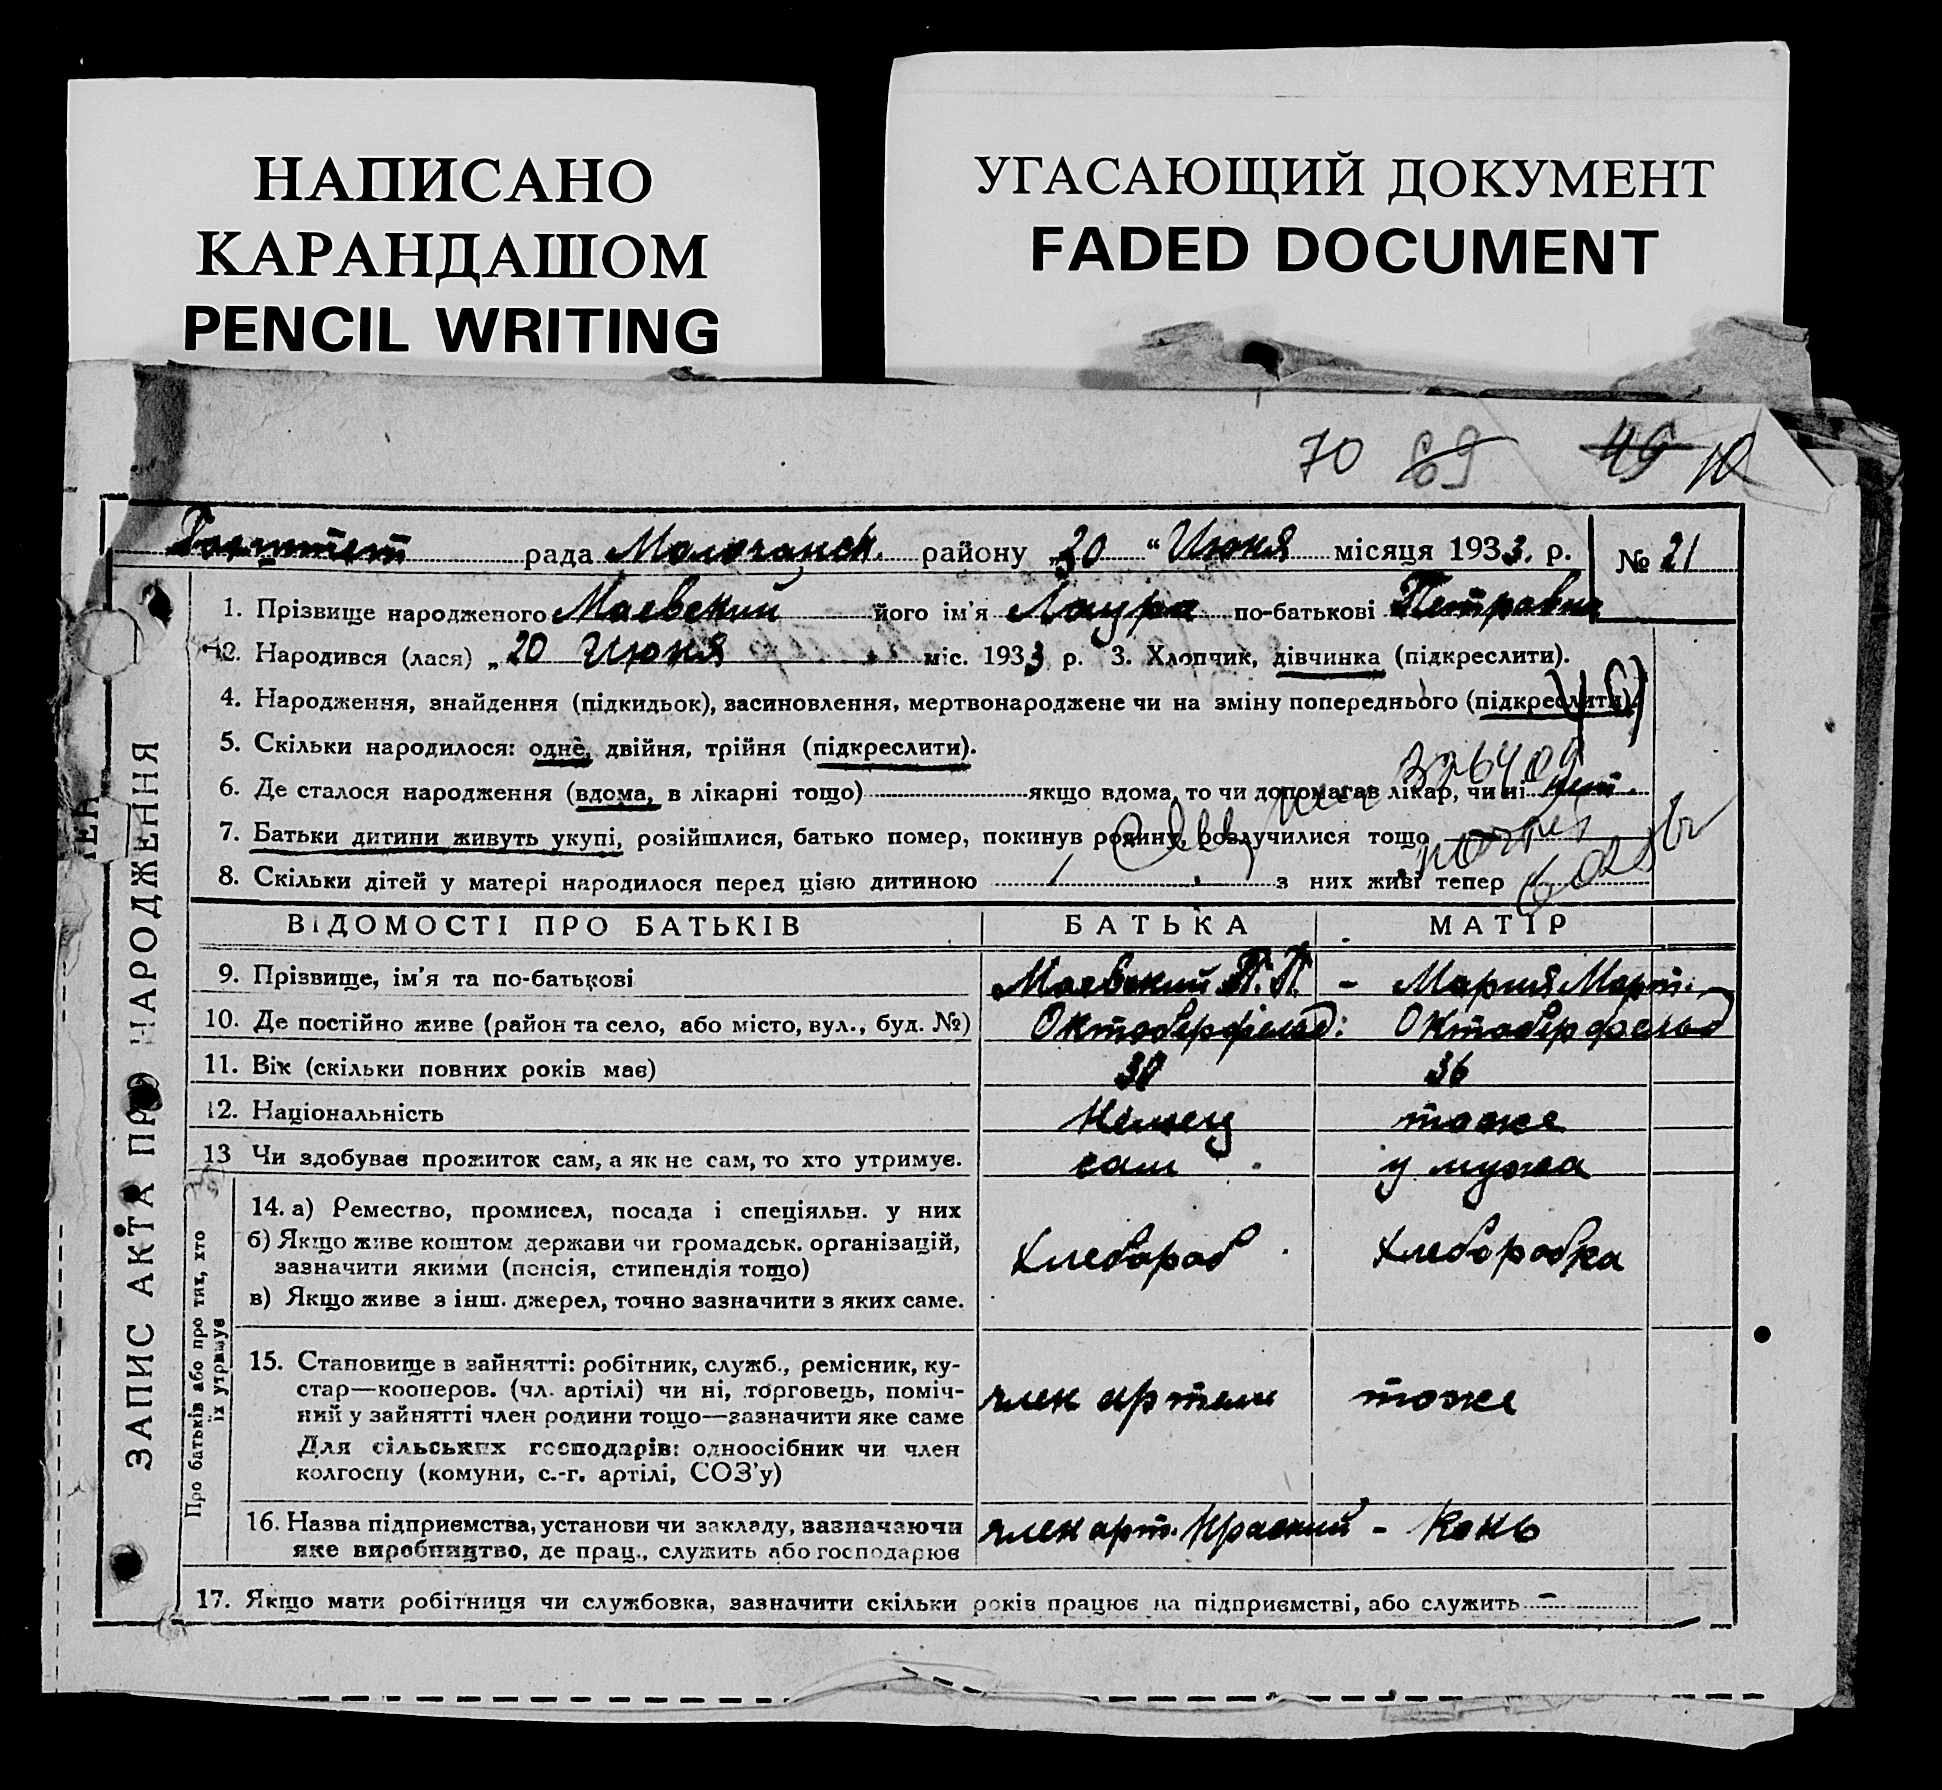 НАПИСАНО
КАРАНДАШОМ
PENCIL WRITING
УГАСАЮЩИЙ ДОКУМЕНТ
FADED DOCUMENT
70 69 46
рада Молочанск. району „30 “ Июня місяця 1933. р. № 21
1. Прізвище народженого Маевский його ім'я Лаура по-батькові Петровна
2. Народився (лася) „20 Июня міс. 1933 р. 3. Хлопчик, дівчинка (підкреслити).
4. Народження, знайдення (підкидьок), засиновлення, мертвонароджене чи на зміну попереднього (підкреслити).
5. Скільки народилося: одне, двійня, трійня (підкреслити).
6. Де сталося народження (вдома, в лікарні тощо) якщо вдома, то чи допомагав лікар, чи ні нет.
7. Батьки дитини живуть укупі, розійшлися, батько помер, покинув родину, розлучилися тощо
8. Скільки дітей у матері народилося перед цією дитиною з них живі тепер
ВІДОМОСТІ ПРО БАТЬКІВ БАТЬКА МАТІР
9. Прізвище, ім'я та по-батькові Маевский П. П. - Мария Март.
10. Де постійно живе (район та село, або місто, вул., буд. №) Октоберфельд: Октоберфельд
11. Вік (скільки повних років має) 36
12. Національність Немец тоже
13 Чи здобував прожиток сам, а як не сам, то хто утримує. сам у мужа
14. а) Ремество, промисел, посада і спеціяльн. у них
б) Якщо живе коштом держави чи громадськ. організацій,
зазначити якими (пенсія, стипендія тощо) Хлебороб Хлеборобка
в) Якщо живе з інш. джерел, точно зазначити з яких саме.
15. Становище в зайнятті: робітник, служб., ремісник, ку-
стар—кооперов. (чл. артілі) чи ні, торговець, поміч- член артели тоже
ний у зайнятті член родини тощо—зазначити яке саме
Для сільських господарів: одноосібник чи член
колгоспу (комуни, с.-г. артілі, СОЗ'у)
16. Назва підприємства, установи чи закладу, зазначаючи член арт. Красний - Конь
яке виробництво, де прац., служить або господарює
17. Якщо мати робітниця чи службовка, зазначити скільки років працює на підприємстві, або служить -
ЗАПИС АКТА ПРО НАРОДЖЕННЯ
Про батьків або про тих, хто
їх утримує